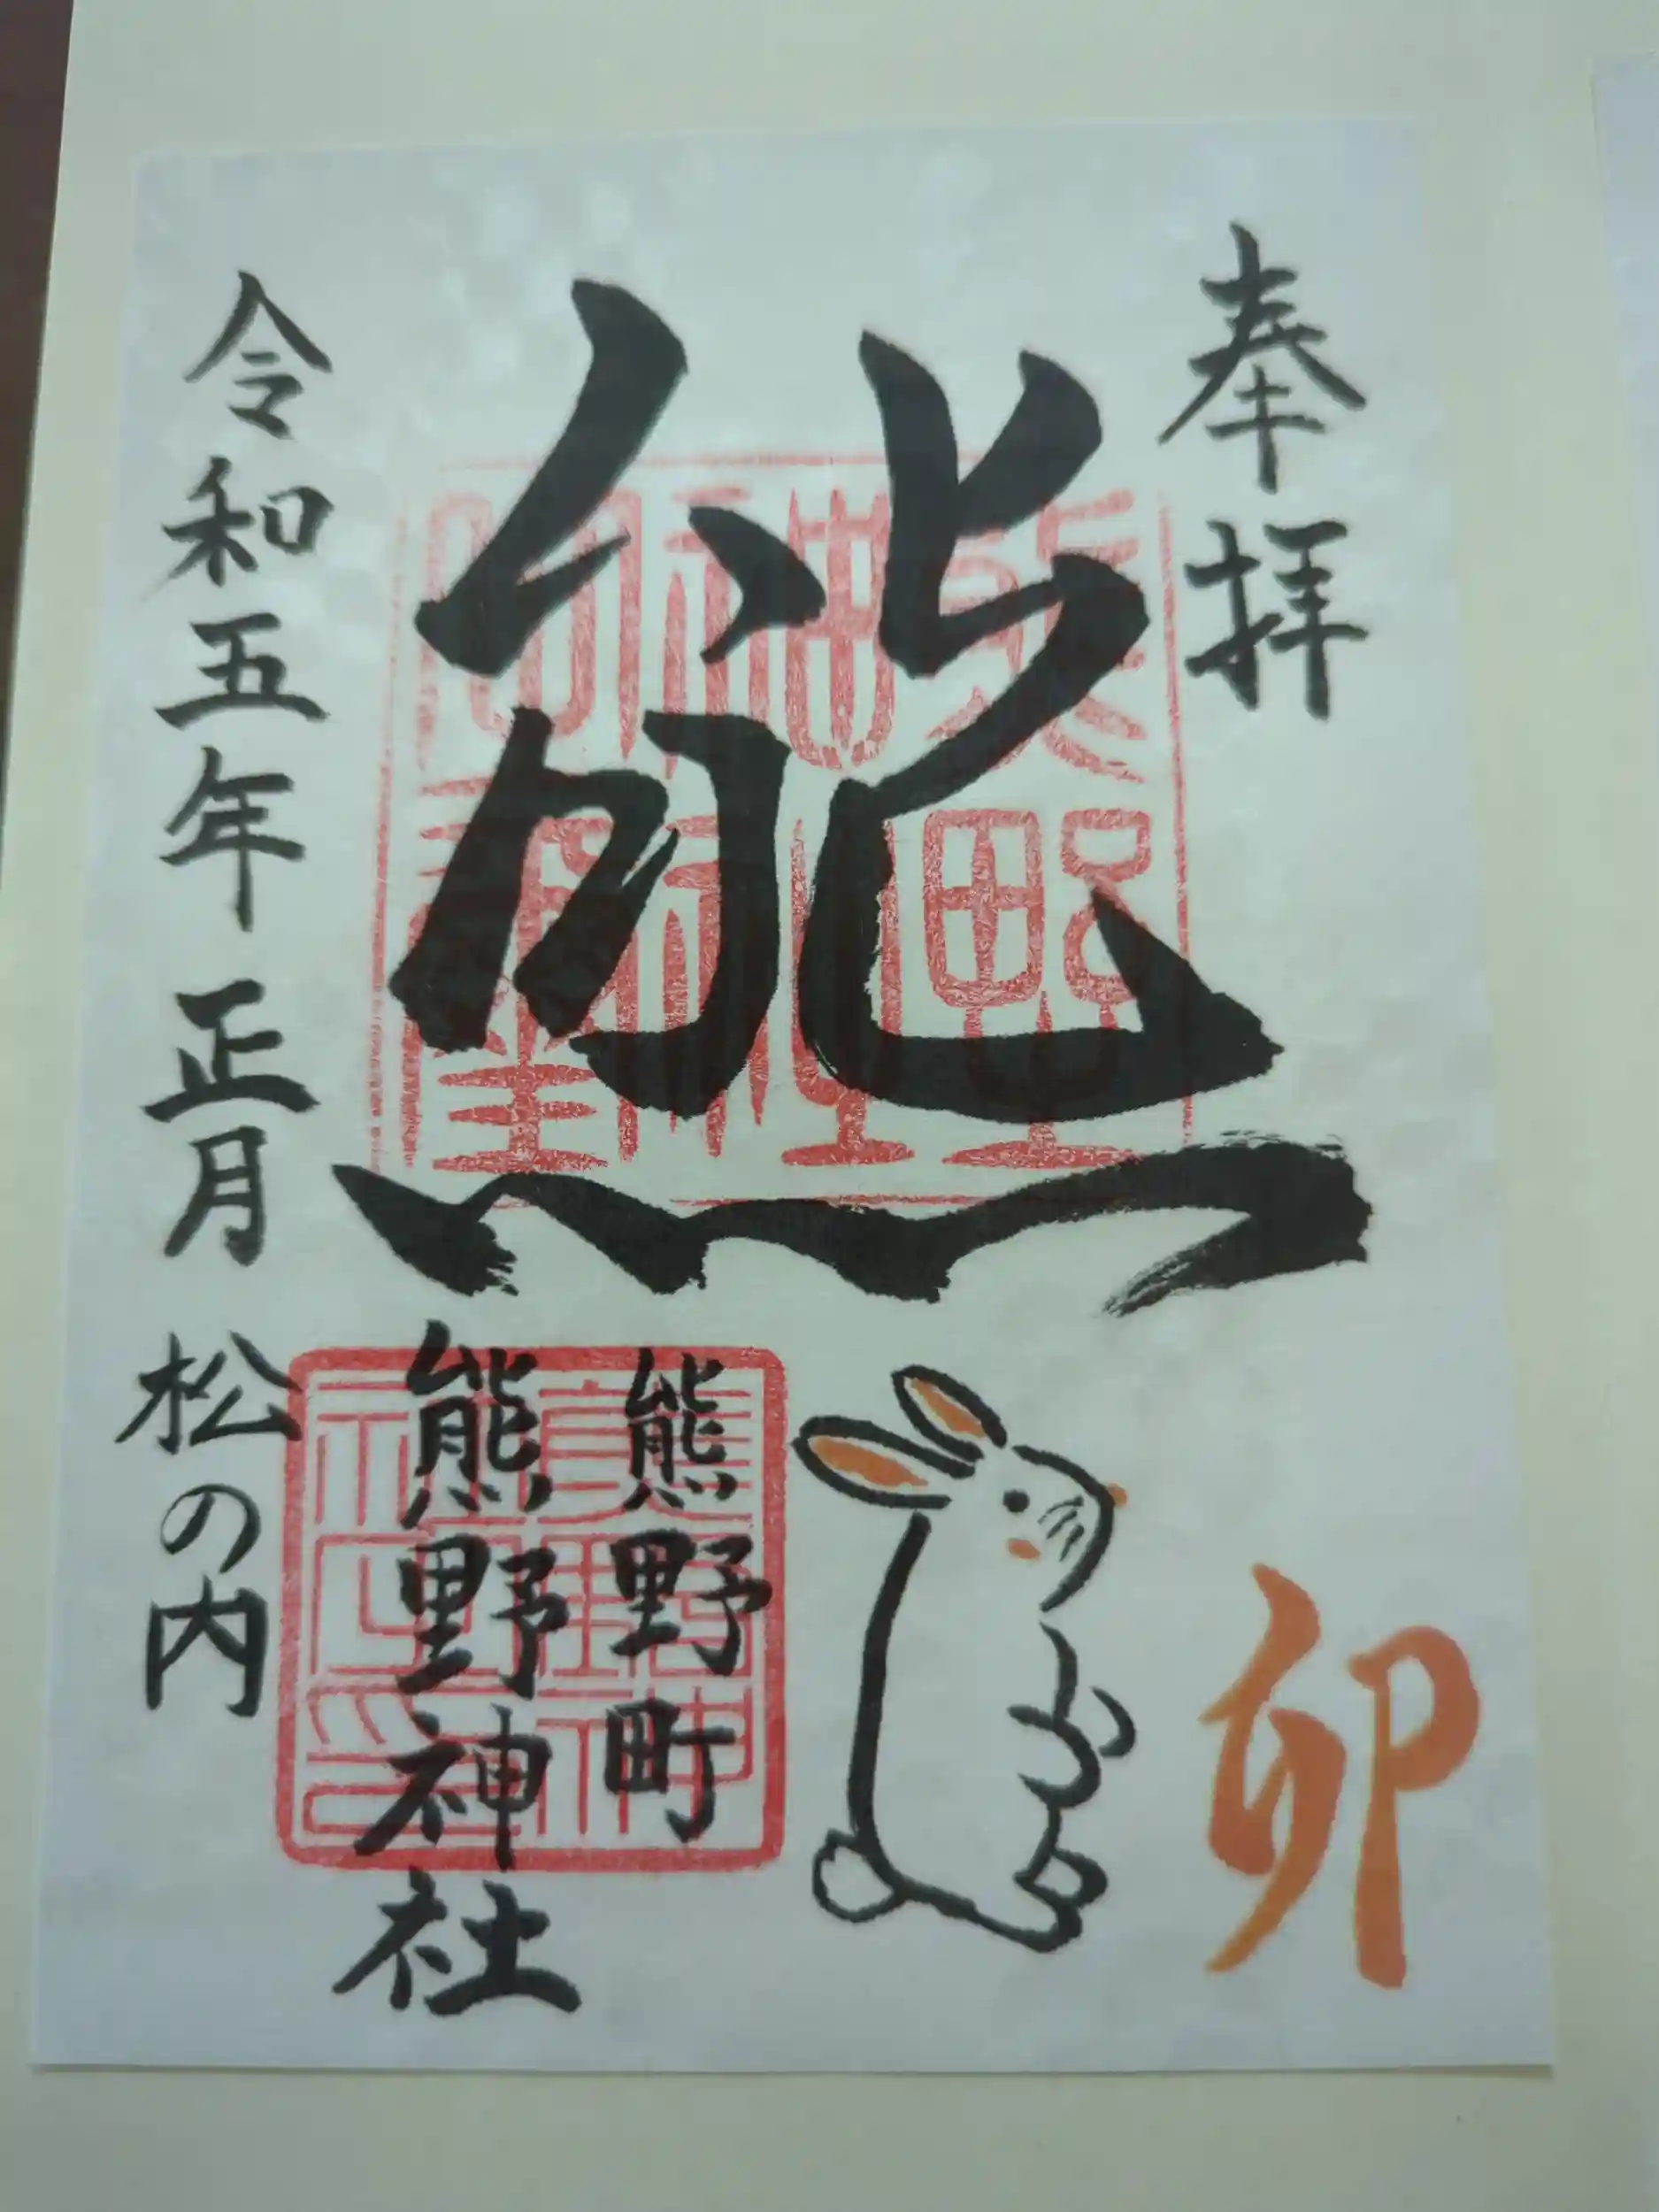 奉拝
熊
卯
熊野町
熊野神社
令和五年 正月 松の内